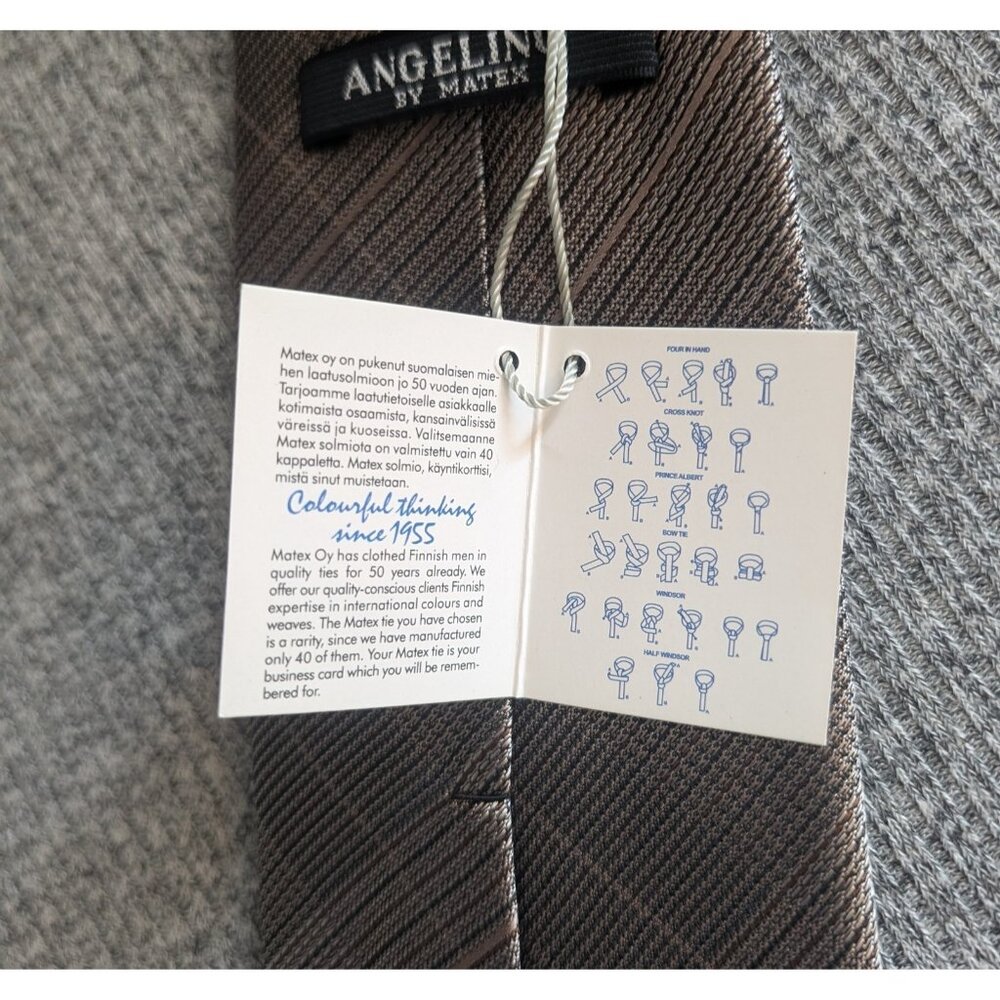 ANGELINO
BY MATEX
Matex oy on pukenut suomalaisen mie-
hen laatusolmioon jo 50 vuoden ajan.
Tarjoamme laatutietoiselle asiakkaalle
kotimaista osaamista, kansainvälisissä
väreissä ja kuoseissa. Valitsemaanne
Matex solmiota on valmistettu vain 40
kappaletta. Matex solmio, käyntikorttisi,
mistä sinut muistetaan.
Colourful thinking
since 1955
Matex Oy has clothed Finnish men in
quality ties for 50 years already. We
offer our quality-conscious clients Finnish
expertise in international colours and
weaves. The Matex tie you have chosen
is a rarity, since we have manufactured
only 40 of them. Your Matex tie is your
business card which you will be remem-
bered for.
FOUR IN HAND
CROSS KNOT
PRINCE ALBERT
BOW TIE
WINDSOR
HALF WINDSOR